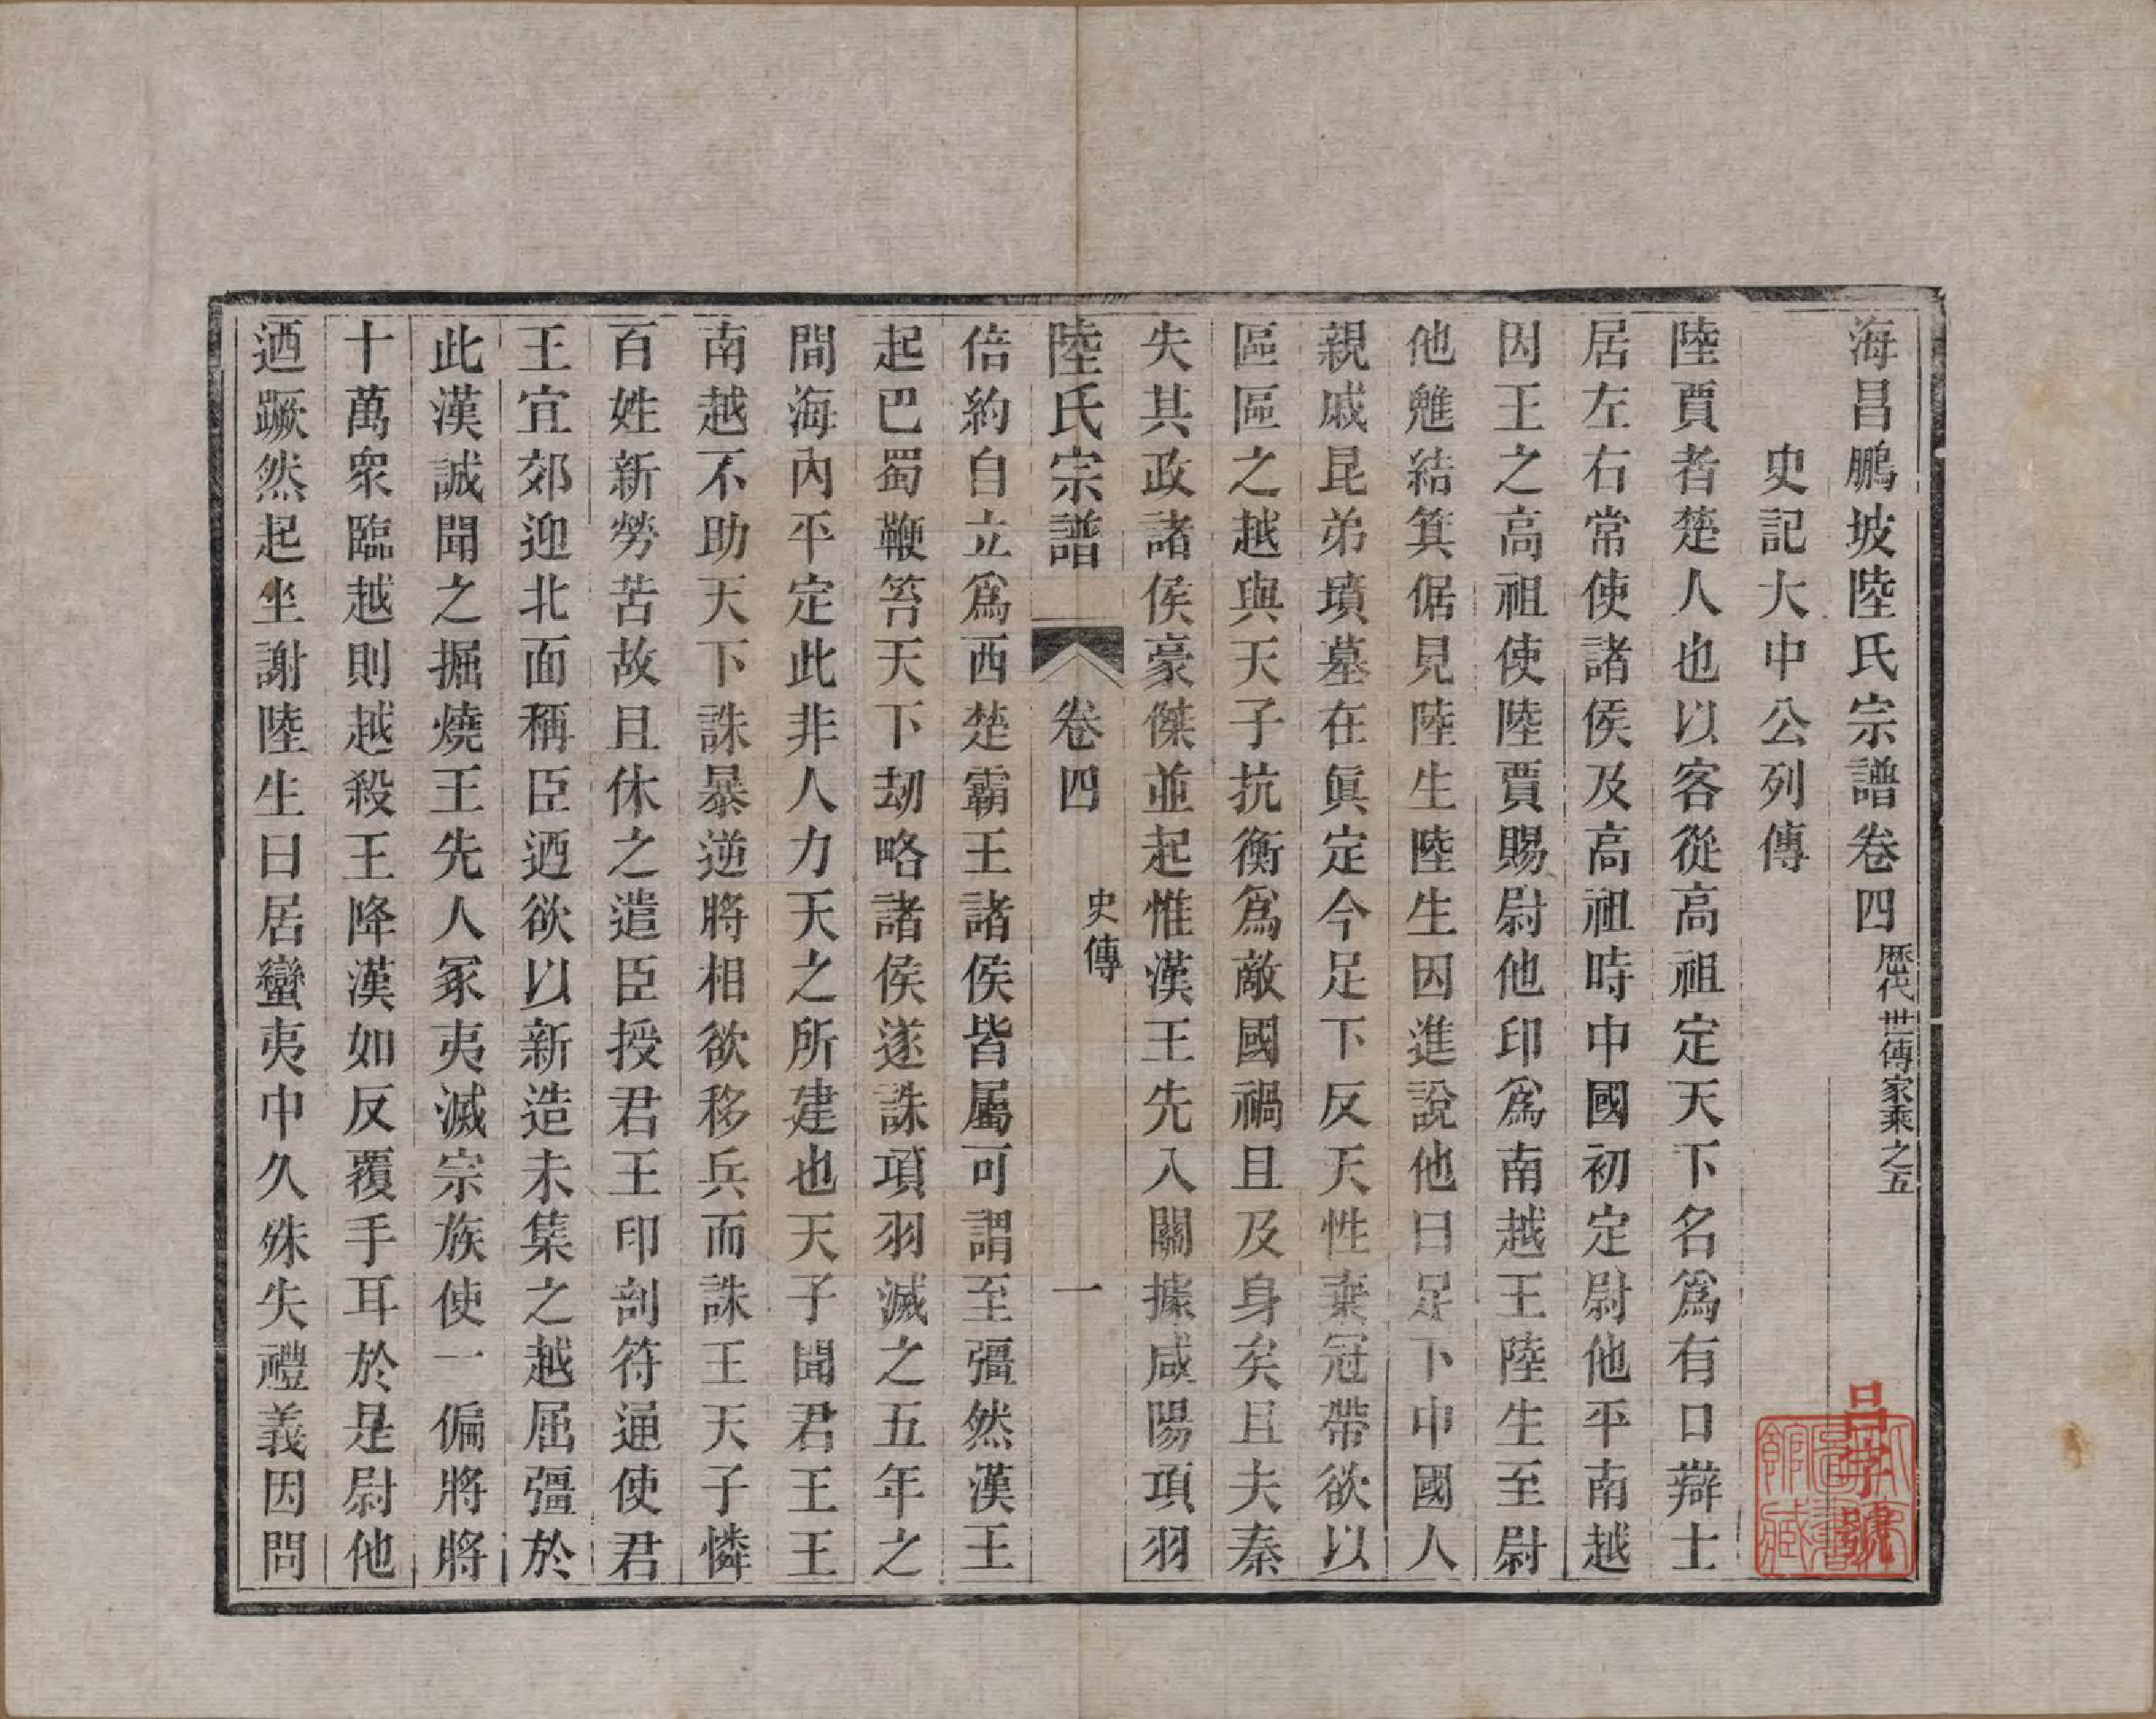 海昌鵬坡陸氏宗譜卷四歷代世傳家乘之五
史記大中公列傳
陸賈者楚人也以客從高祖定天下名爲有口辯士
居左右常使諸侯及高祖時中國初定尉他平南越
因王之高祖使陸賈賜尉他印爲南越王陸生至尉
他魋結箕倨見陸生陸生因進說他曰足下中國人
親戚昆弟墳墓在眞定今足下反天性棄冠帶欲以
區區之越與天子抗衡爲敵國禍且及身矣且夫秦
失其政諸侯豪傑並起惟漢王先入關據咸陽項羽
陸氏宗譜
卷四
史傳
一
倍約自立爲西楚霸王諸侯皆屬可謂至彊然漢王
起巴蜀鞭笞天下劫略諸侯遂誅項羽滅之五年之
間海內平定此非人力天之所建也天子聞君王王
南越不助天下誅暴逆將相欲移兵而誅王天子憐
百姓新勞苦故且休之遣臣授君王印剖符通使君
王宜郊迎北面稱臣迺欲以新造未集之越屈彊於
此漢誠聞之掘燒王先人冢夷滅宗族使一偏將將
十萬衆臨越則越殺王降漢如反覆手耳於是尉他
迺蹶然起坐謝陸生曰居蠻夷中久殊失禮義因問
呂字號